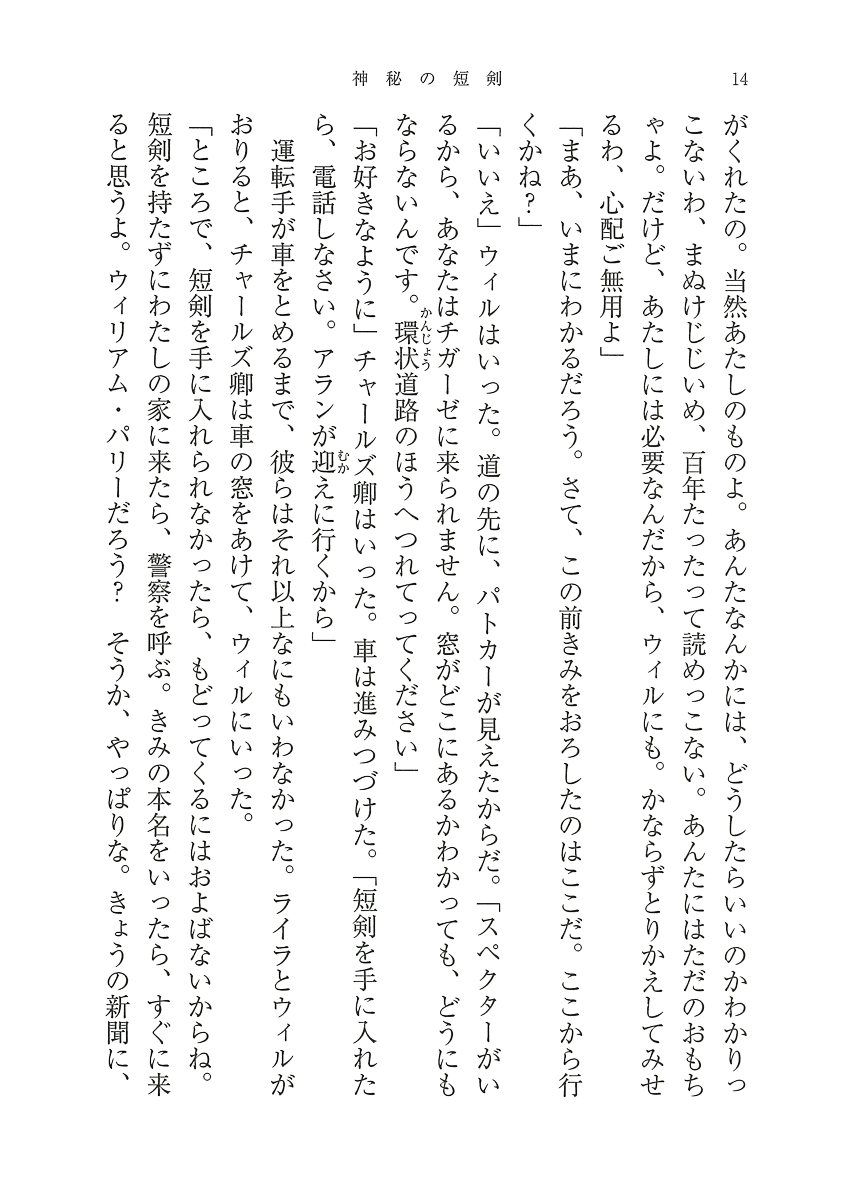 神秘の短剣
14
がくれたの。当然あたしのものよ。あんたなんかには、どうしたらいいのかわかりっ
こないわ、まぬけじじいめ、百年たったって読めっこない。あんたにはただのおもち
ゃよ。だけど、あたしには必要なんだから、ウィルにも。かならずとりかえしてみせ
るわ、心配ご無用よ」
「まあ、いまにわかるだろう。さて、この前きみをおろしたのはここだ。ここから行
くかね？」
「いいえ」ウィルはいった。道の先に、パトカーが見えたからだ。「スペクターがい
るから、あなたはチガーゼに来られません。窓がどこにあるかわかっても、どうにも
ならないんです。環状道路のほうへつれてってください」
かんじょう
「お好きなように」チャールズ卿はいった。車は進みつづけた。「短剣を手に入れた
ら、電話しなさい。アランが迎えに行くから」
むか
運転手が車をとめるまで、彼らはそれ以上なにもいわなかった。ライラとウィルが
おりると、チャールズ卿は車の窓をあけて、ウィルにいった。
「ところで、短剣を手に入れられなかったら、もどってくるにはおよばないからね。
短剣を持たずにわたしの家に来たら、警察を呼ぶ。きみの本名をいったら、すぐに来
ると思うよ。ウィリアム・パリーだろう？　そうか、やっぱりな。きょうの新聞に、